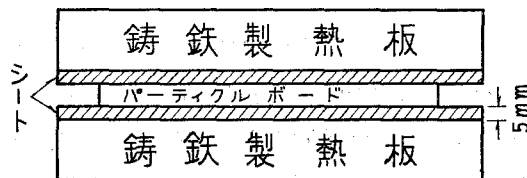 鋳鉄製熱板
シート
パーティクルボード
5mm
鋳鉄製熱板